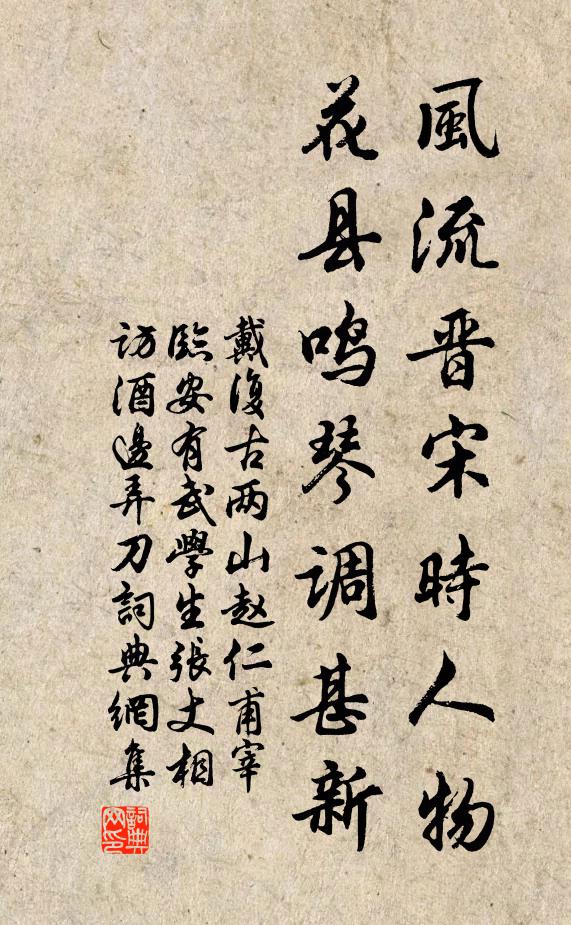 風流晋宋時人物
花县鸣琴调甚新
戴復古两山赵仁甫宰
臨安有武學生張丈相
訪酒邊弄刀詞典網集
詞典
网印